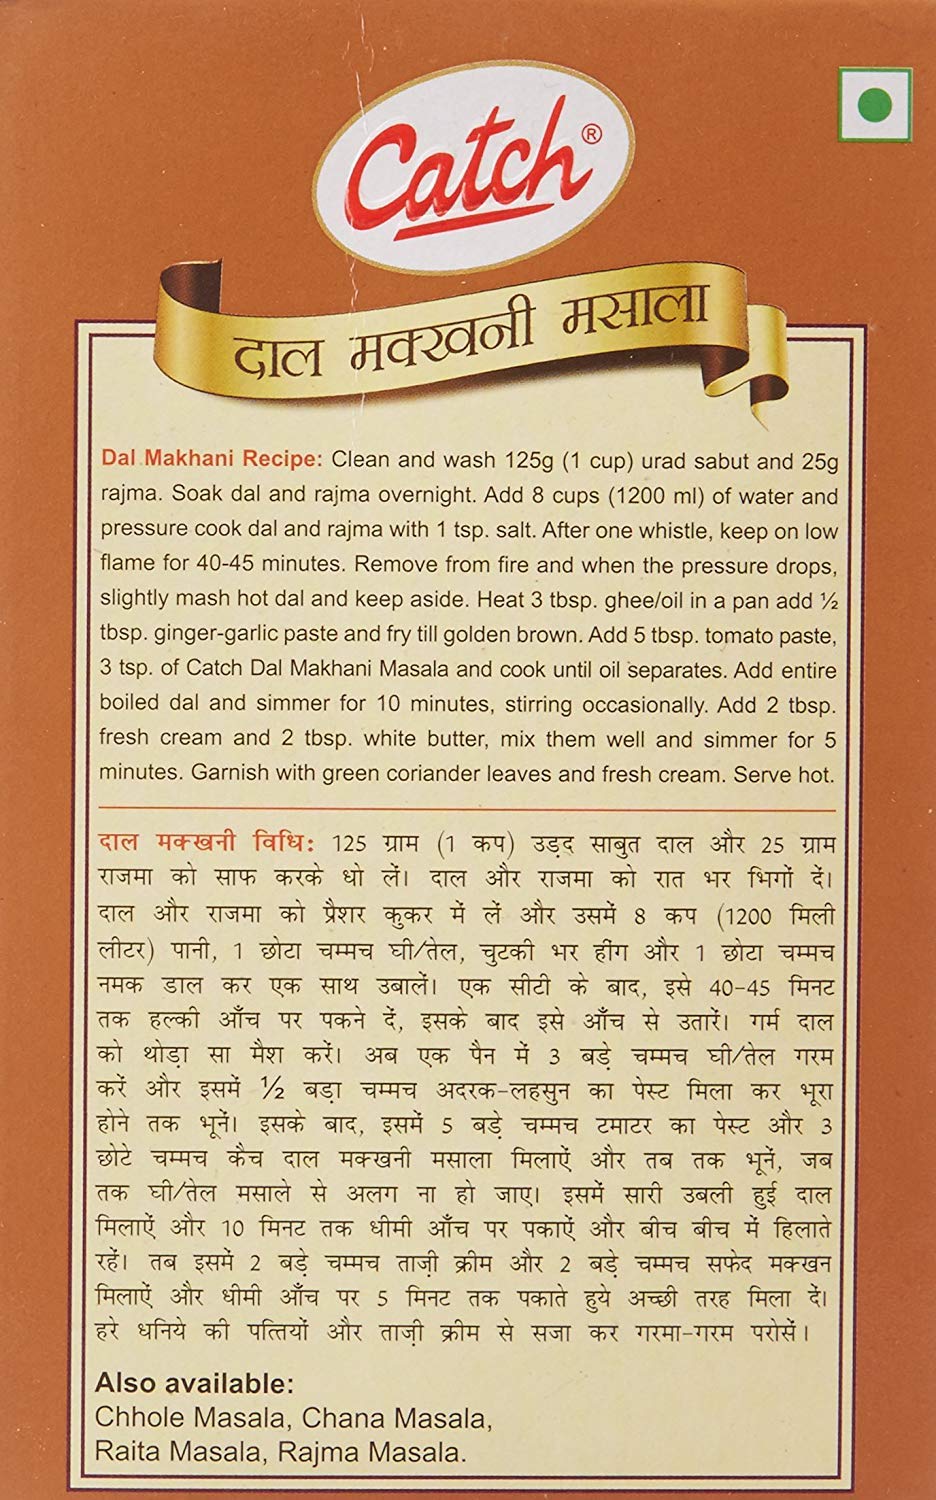 Catch®
दाल मक्खनी मसाला
Dal Makhani Recipe: Clean and wash 125g (1 cup) urad sabut and 25g
rajma. Soak dal and rajma overnight. Add 8 cups (1200 ml) of water and
pressure cook dal and rajma with 1 tsp. salt. After one whistle, keep on low
flame for 40-45 minutes. Remove from fire and when the pressure drops,
slightly mash hot dal and keep aside. Heat 3 tbsp. ghee/oil in a pan add ½
tbsp. ginger-garlic paste and fry till golden brown. Add 5 tbsp. tomato paste,
3 tsp. of Catch Dal Makhani Masala and cook until oil separates. Add entire
boiled dal and simmer for 10 minutes, stirring occasionally. Add 2 tbsp.
fresh cream and 2 tbsp. white butter, mix them well and simmer for 5
minutes. Garnish with green coriander leaves and fresh cream. Serve hot.
दाल मक्खनी विधि: 125 ग्राम (1 कप) उड़द साबुत दाल और 25 ग्राम
राजमा को साफ करके धो लें। दाल और राजमा को रात भर भिगों दें।
दाल और राजमा को प्रैशर कुकर में लें और उसमें 8 कप (1200 मिली
लीटर) पानी, 1 छोटा चम्मच घी/तेल, चुटकी भर हींग और 1 छोटा चम्मच
नमक डाल कर एक साथ उबालें। एक सीटी के बाद, इसे 40-45 मिनट
तक हल्की आँच पर पकने दें, इसके बाद इसे आँच से उतारें। गर्म दाल
को थोड़ा सा मैश करें। अब एक पैन में 3 बड़े चम्मच घी/तेल गरम
करें और इसमें ½ बड़ा चम्मच अदरक-लहसुन का पेस्ट मिला कर भूरा
होने तक भूनें। इसके बाद, इसमें 5 बड़े चम्मच टमाटर का पेस्ट और 3
छोटे चम्मच कैच दाल मक्खनी मसाला मिलाऐं और तब तक भूनें, जब
तक घी/तेल मसाले से अलग ना हो जाए। इसमें सारी उबली हुई दाल
मिलाऐं और 10 मिनट तक धीमी आँच पर पकाऐं और बीच बीच में हिलाते
रहें। तब इसमें 2 बड़े चम्मच ताज़ी क्रीम और 2 बड़े चम्मच सफेद मक्खन
मिलाऐं और धीमी आँच पर 5 मिनट तक पकाते हुये अच्छी तरह मिला दें।
हरे धनिये की पत्तियों और ताज़ी क्रीम से सजा कर गरमा-गरम परोसें।
Also available:
Chhole Masala, Chana Masala,
Raita Masala, Rajma Masala.